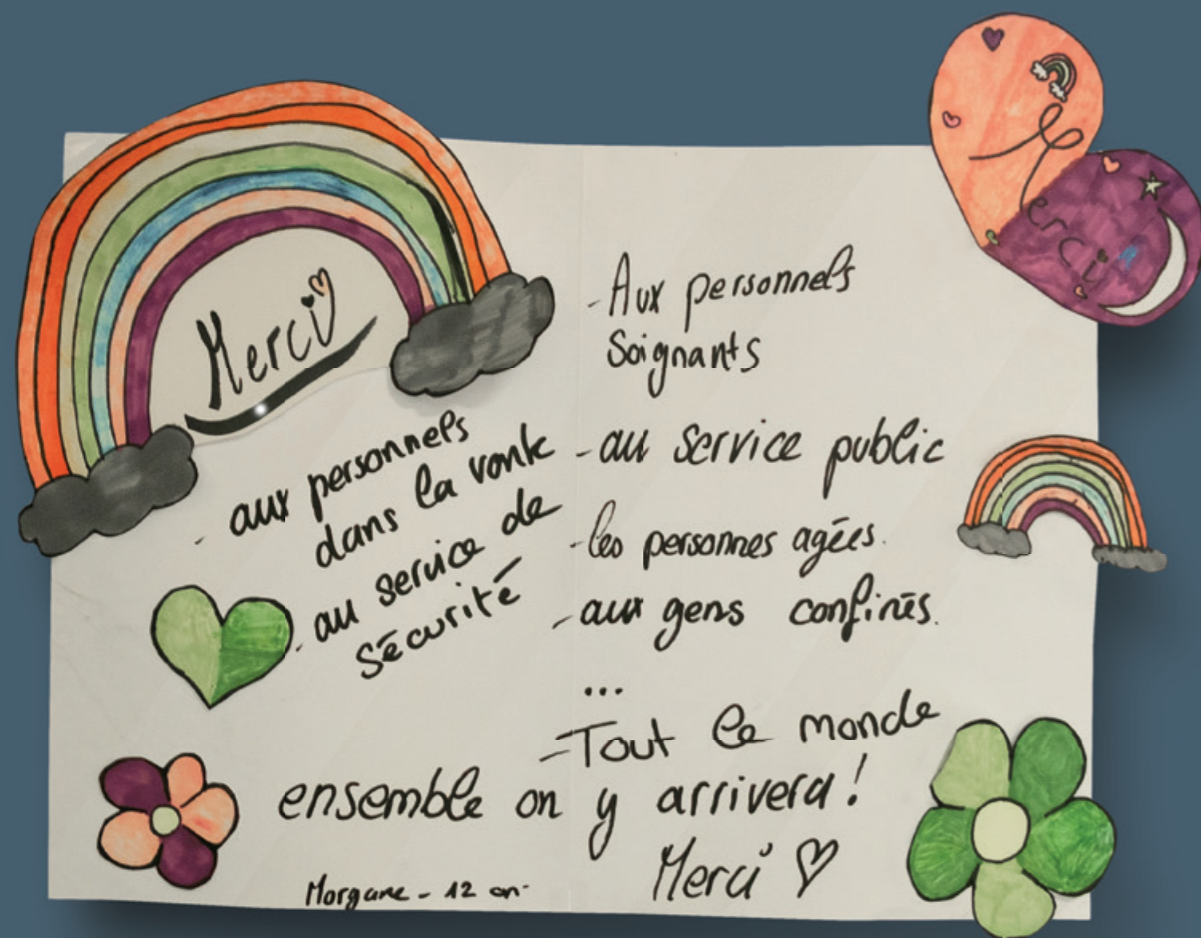 Merci
- aux personnels
dans la vente
- au service de
sécurité
- Aux personnels
Soignants
- au service public
- les personnes agées.
- aux gens confinés.
...
- Tout le monde
ensemble on y arrivera !
Merci ♡
Morgane - 12 an
Merci